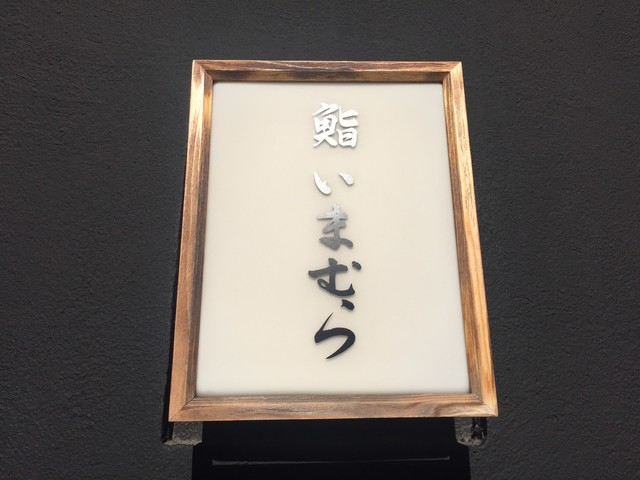 鮨いまむら